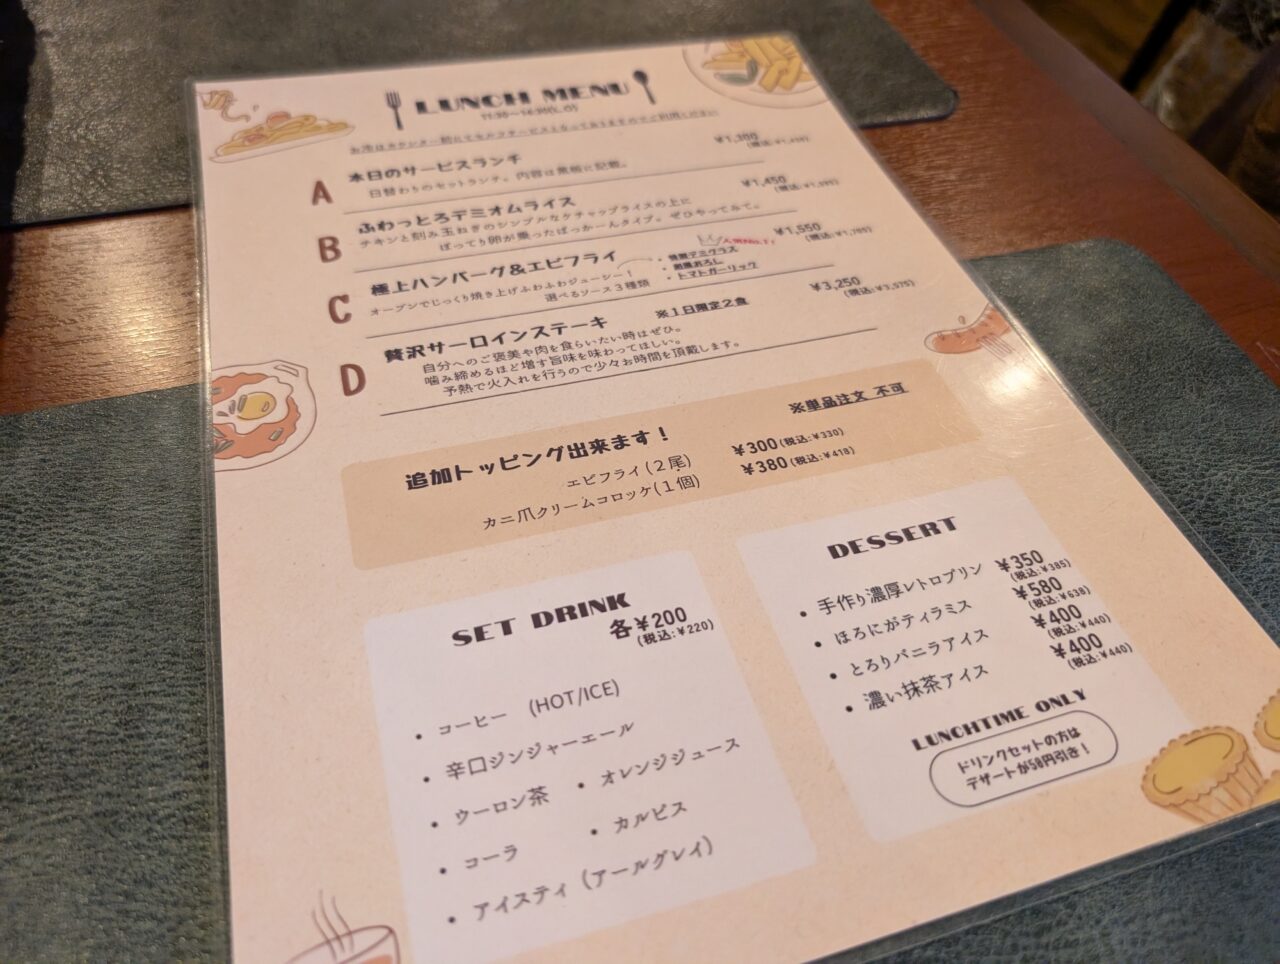 LUNCH MENU
お冷はカウンター前にてセルフサービスとなっておりますのでご利用ください
A
本日のサービスランチ
¥1,300
日替わりのセットランチ。内容は黒板に記載。
B
ふわっとろデミオムライス
¥1,450
(税込:¥1,595)
チキンと刻み玉ねぎのシンプルなケチャップライスの上に
ぽってり卵が乗ったぱっかーんタイプ。ぜひやってみて。
C
極上ハンバーグ&エビフライ
¥1,550
(税込:¥1,705)
オーブンでじっくり焼き上げふわふわジューシー!
選べるソース3種類
人気No.1!
・特製デミグラス
・和風おろし
・トマトガーリック
D
贅沢サーロインステーキ
※1日限定2食
¥3,250
(税込:¥3,575)
自分へのご褒美や肉を食らいたい時はぜひ。
噛み締めるほど増す旨味を味わってほしい。
予熱で火入れを行うので少々お時間を頂戴します。
追加トッピング出来ます!
※単品注文 不可
エビフライ(2尾) ¥300(税込:¥330)
カニ爪クリームコロッケ(1個) ¥380(税込:¥418)
SET DRINK
各¥200
(税込:¥220)
・コーヒー (HOT/ICE)
・辛口ジンジャーエール
・ウーロン茶 ・オレンジジュース
・コーラ ・カルピス
・アイスティ (アールグレイ)
DESSERT
・手作り濃厚レトロプリン ¥350
(税込:¥385)
・ほろにがティラミス ¥580
(税込:¥638)
・とろりバニラアイス ¥400
(税込:¥440)
・濃い抹茶アイス ¥400
(税込:¥440)
LUNCHTIME ONLY
ドリンクセットの方は
デザートが50円引き!